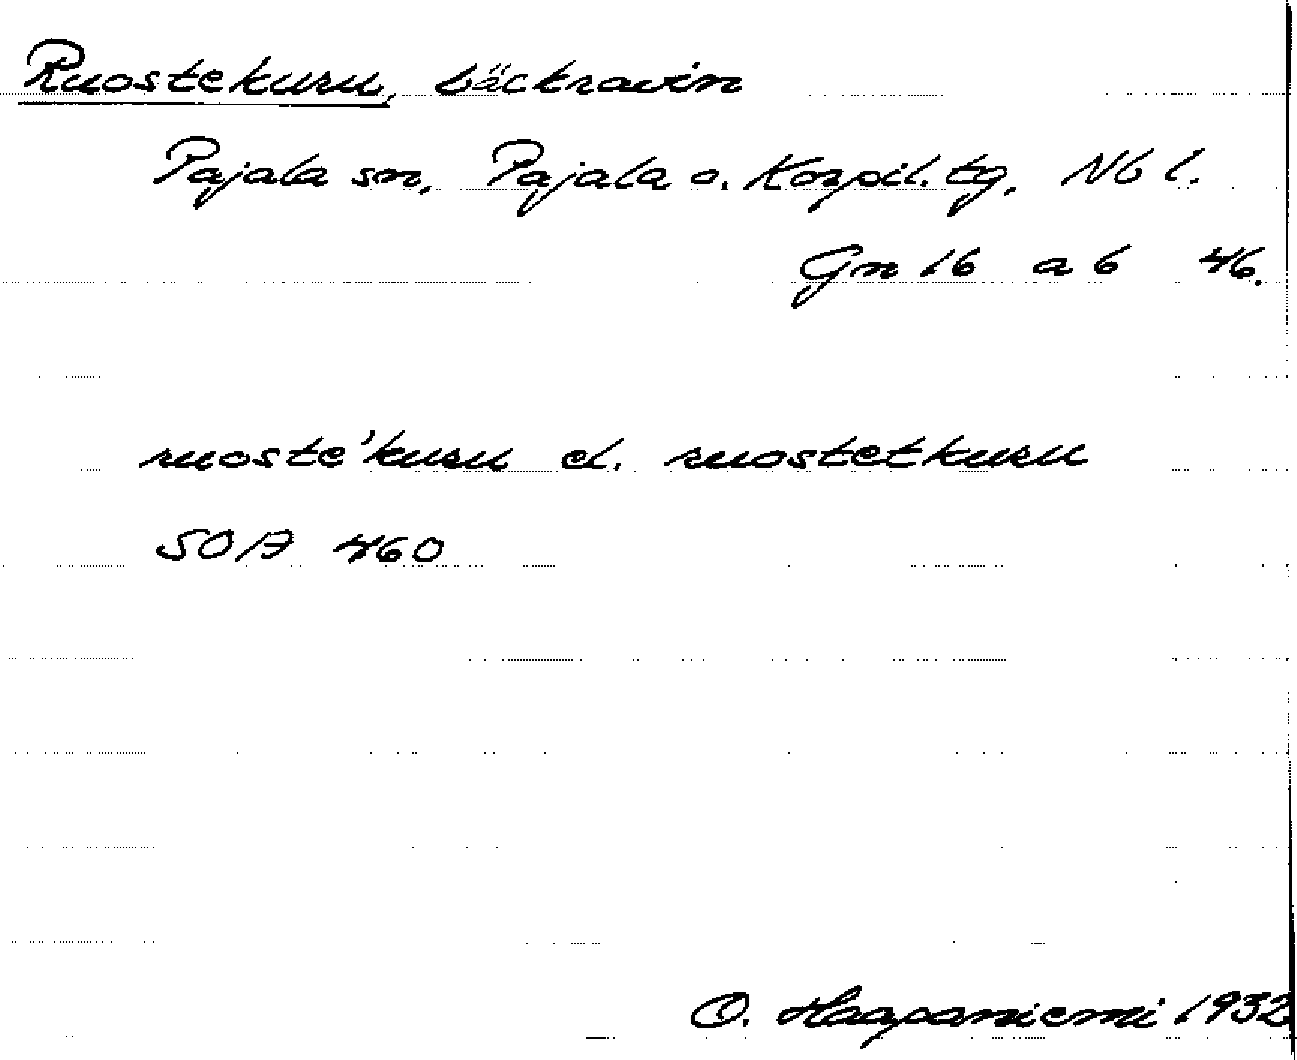 Ruostekuru, bäckravin
Pajala sn, Pajala o. Korpil. tg, Nb l.
Gn 16 a 6 46.
ruoste'kuru el. ruostetkuru
SOA 460
O. Haapaniemi 1932